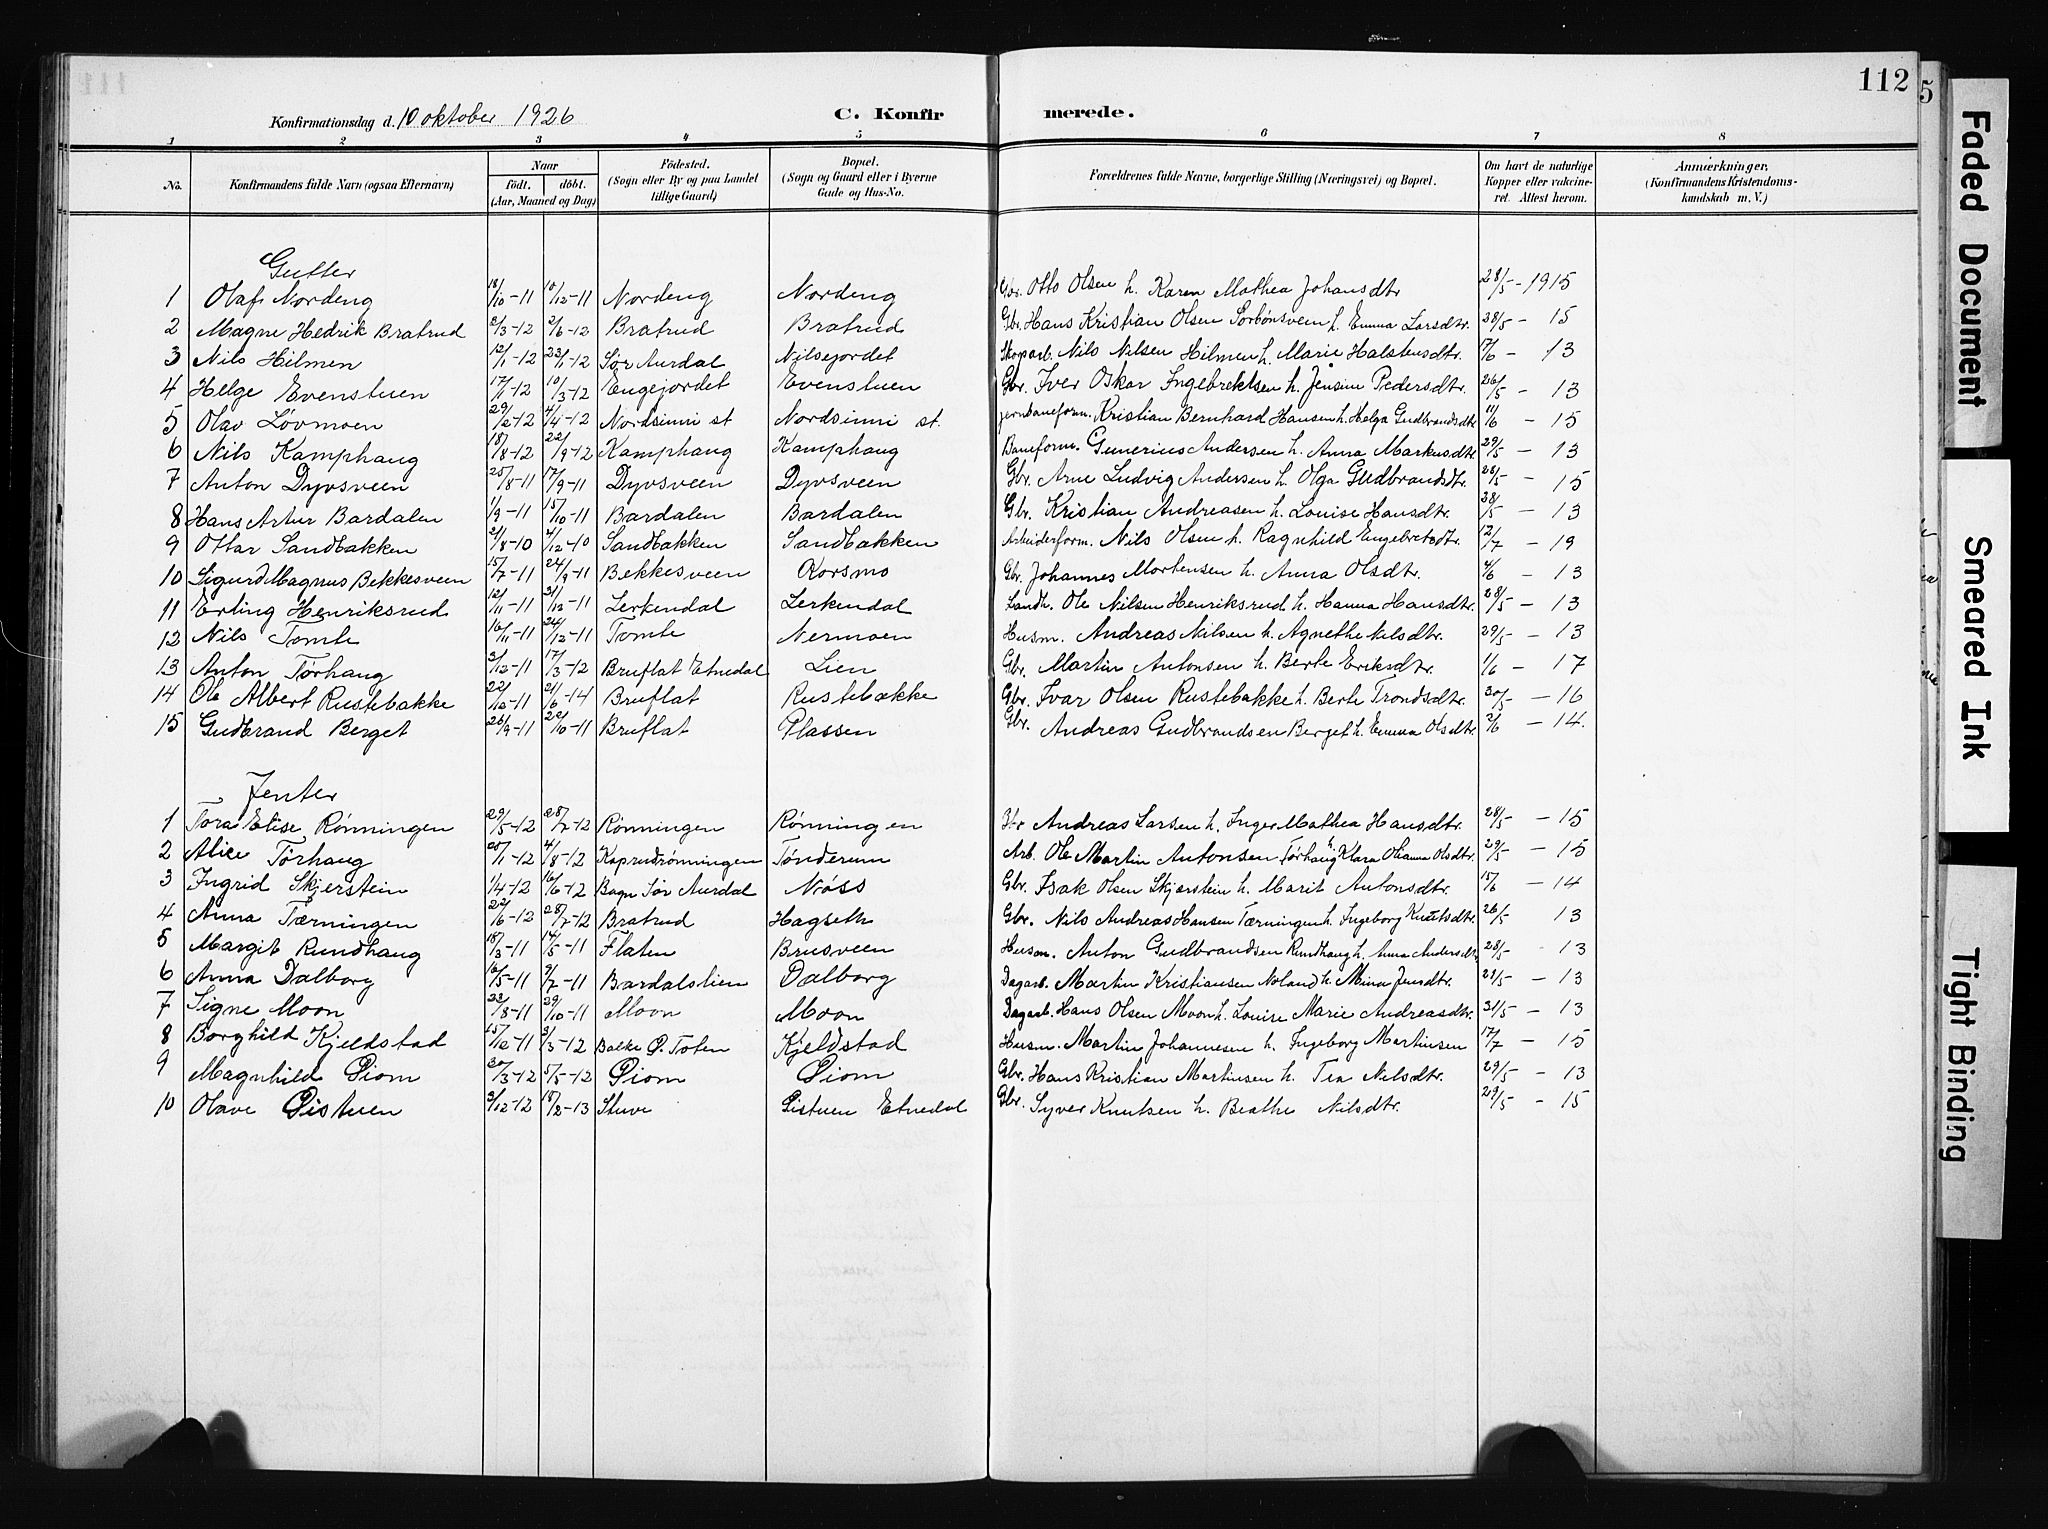 112
5
Konfirmationsdag d. 10 oktober 1926 C. Konfir merede.
1 2 3 4 5 6 7 8
No. Konfirmandens fulde Navn (ogsaa Efternavn) Naar født. døbt. (Aar, Maaned og Dag) Fødested. (Sogn eller By og paa Landet tillige Gaard) Bopæl. (Sogn og Gaard eller i Byerne Gade og Hus-No. Forældrenes fulde Navne, borgerlige Stilling (Næringsvei) og Bopæl. Om havt de naturlige Kopper eller vakcineret. Attest herom. Anmærkninger. (Konfirmandens Kristendomskundskab m. V.)
Gutter
1 Olaf Nordeng 18/10-11 10/12-11 Nordeng Nordeng Gbr. Otto Olsen h. Karen Mathea Johansdtr 28/5-1915
2 Magne Hedrik Bratrud 2/3-12 2/6-12 Bratrud Bratrud Gbr. Hans Kristian Olsen Sorbønsveen h. Emma Larsdtr. 28/5 - 15
3 Nils Hilmen 12/1-12 23/1-12 Sør Aurdal Nilsejordet Skoparb. Nils Nilsen Hilmen h. Marie Halstensdtr. 17/6 - 13
4 Helge Evenstuen 17/1-12 10/3-12 Engejordet Evenstuen Gbr. Iver Oskar Ingebrektsen h. Jensine Pedersdtr. 26/5 - 13
5 Olav Løvmoen 29/2-12 4/4-12 Nordsinni st Nordsinni st. jernbaneform. Kristian Bernhard Hansen h. Helga Gudbrandsdtr 11/6 - 15
6 Nils Kamphaug 18/8-12 22/9-12 Kamphaug Kamphaug Baneform. Gunerius Andersen h. Anna Markusdtr 29/5 - 13
7 Anton Dyvsveen 25/8-11 17/9-11 Dyvsveen Dyvsveen Gbr. Arne Ludvig Andersen h. Olga Gudbrandsdtr. 28/5 - 15
8 Hans Artur Bardalen 1/9-11 15/10-11 Bardalen Bardalen Gbr. Kristian Andreasen h. Louise Hansdtr. 28/5 - 13
9 Ottar Sandbakken 2/8-10 4/12-10 Sandbakken Sandbakken Arbeiderform. Nils Olsen h. Ragnhild Engebretsdtr. 12/7 - 19
10 Sigurd Magnus Bekkesveen 15/7-11 24/9-11 Bekkesveen Korsmo Gbr. Johannes Mortensen h. Anna Olsdtr. 4/6 - 13
11 Erling Henriksrud 12/11-11 31/12-11 Lerkendal Lerkendal Landh. Ole Nilsen Henriksrud h. Hanna Hansdtr. 28/5 - 13
12 Nils Tomle 16/11-11 24/12-11 Tomle Nermoen Husm. Andreas Nilsen h. Agnethe Nilsdtr. 29/5 - 13
13 Anton Tørhaug 3/12-11 17/3-12 Bruflat Etnedal Lien Gbr. Martin Antonsen h. Berte Eriksdtr. 1/6 - 17
14 Ole Albert Rustebakke 22/12-11 21/6-14 Bruflat Rustebakke Gbr. Ivar Olsen Rustebakke h. Berte Trondsdtr. 30/5 - 16
15 Gudbrand Berget 26/9-11 22/10-11 Bruflat Plassen Gbr. Andreas Gudbrandsen Berget h. Emma Olsdtr. 2/6 - 14.
Jenter
1 Tora Elise Rønningen 29/5-12 28/7-12 Rønningen Rønningen Gbr Andreas Larsen h. Inger Mathea Hansdtr. 28/5 - 15
2 Alice Tørhaug 20/1-12 4/8-12 Kaprudrønningen Tønderum Arb. Ole Martin Antonsen Tørhaug h. Klara Olianna Olsdtr. 29/5 - 15
3 Ingrid Skjerstein 1/4-12 16/6-12 Bagn Sør Aurdal Nøss Gbr. Isak Olsen Skjerstein h. Marit Antonsdtr. 15/6 - 14
4 Anna Tærningen 22/6-12 28/7-12 Bratrud Hagseth Gbr. Nils Andreas Hansen Tærningen h. Ingeborg Knutsdtr. 26/5 13
5 Margit Rundhaug 18/3-11 14/5-11 Flaten Brusveen Husm. Anton Gudbrandsen Rundhaug h. Anna Andersdtr. 28/5 - 13
6 Anna Dalborg 16/5-11 9/7-11 Bardalslien Dalborg Dagarb. Martin Kristiansen Noland h. Mina Jensdtr. 29/5 - 13
7 Signe Moon 23/8-11 29/10-11 Moon Moon Dagarb. Hans Olsen Moon h. Louise Marie Andreasdtr. 31/5 - 13
8 Borghild Kjeldstad 15/12-11 3/3-12 Balke Ø. Toten Kjeldstad Husm. Martin Johannesen h. Ingeborg Martinsen 17/7 - 15
9 Magnhild Piom 20/3-12 5/5-12 Piom Piom Gbr. Hans Kristian Martinsen h. Tea Nilsdtr. 29/5 - 13
10 Olave Pistuen 3/12-12 18/2-13 Stuve Pistuen Etnedal Gbr. Syver Knutsen h. Beathe Nilsdtr. 29/5 - 15
Faded Document
Smeared Ink
Tight Binding